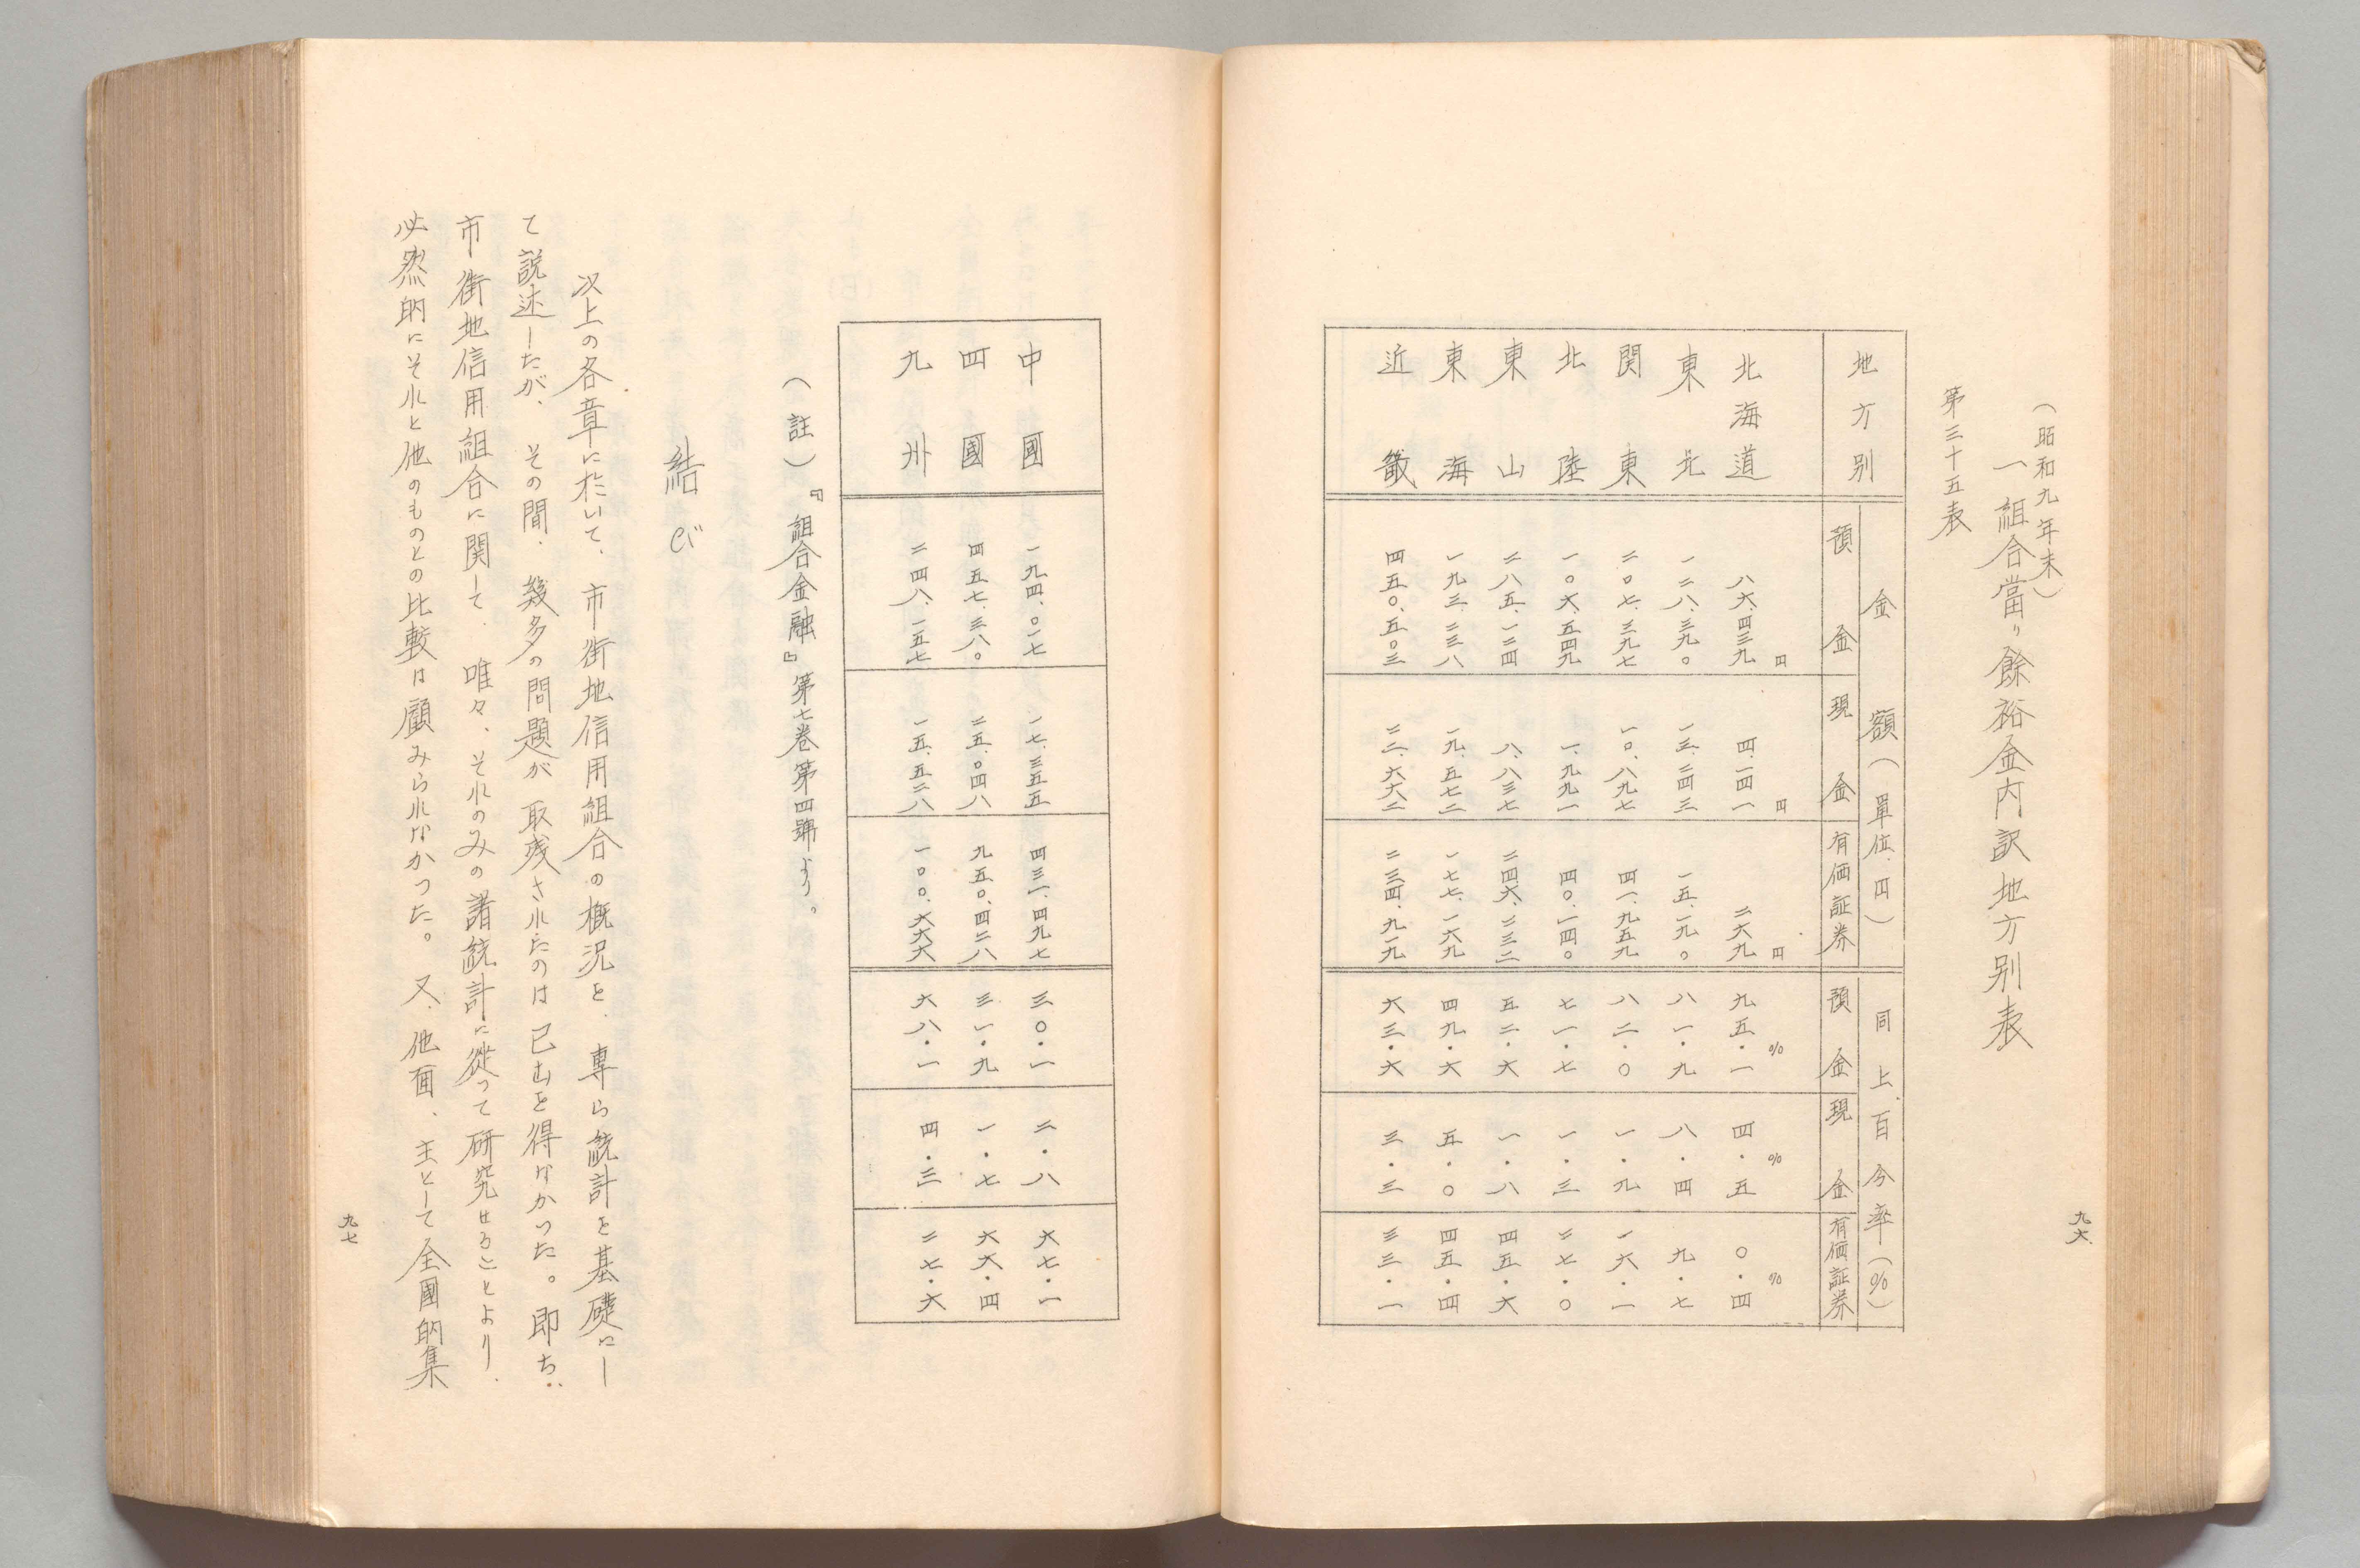 (昭和九年末)
一組合當り餘裕金内訳地方別表
第三十五表
地方別 金額(單位.円) 同上百分率(%)
預金 現金 有価証券 預金 現金 有価証券
円 円 円 % % %
北海道 八六.四三九 四.一四一 三六九 九五・一 四・五 〇・四
東北 一二八.三九〇 一三.二四三 一五.一九〇 八一・九 八・四 九・七
関東 二〇七.三九七 一〇.八九七 四一.九五九 八二・〇 一・九 一六・一
北陸 一〇六.五四九 一.九九一 四〇.一四〇 七一・七 一・三 二七・〇
東山 二八五.一二四 八.八三七 二四六.三三二 五二・六 一・八 四五・六
東海 一九三.二三八 一九.五七二 一七七.一六九 四九・六 五・〇 四五・四
近畿 四五〇.五〇三 二三.六六二 二三四.九一九 六三・六 三・三 三三・一
九六
中國 一九四.〇一七 一七.三五五 四三一.四九七 三〇・一 二・八 六七・一
四國 四五七.三八〇 二五.〇四八 九五〇.四二八 三一・九 一・七 六六・四
九州 二四八.一五七 一五.五二八 一〇〇.六六六 六八・一 四・三 二七・六
(註)『組合金融』第七巻第四號より。
結び
以上の各章に於いて、市街地信用組合の概況を、専ら統計を基礎にし
て説述したが、その間、幾多の問題が取残されたのは已むを得なかった。即ち、
市街地信用組合に関して、唯々、それのみの諸統計に従って研究せることより、
必然的にそれと他のものとの比較は顧みられなかった。又、他面、主として全國的集
九七